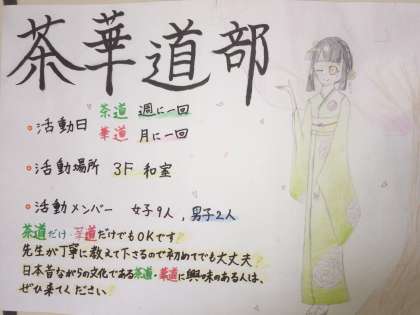 茶華道部
・活動日 茶道 週に一回
華道 月に一回
・活動場所 3F 和室
・活動メンバー 女子9人、男子2人
茶道だけ・華道だけでもOKです!
先生が丁寧に教えて下さるので初めてでも大丈夫?
日本昔ながらの文化である茶道・華道に興味のある人は、
ぜひ来てください!